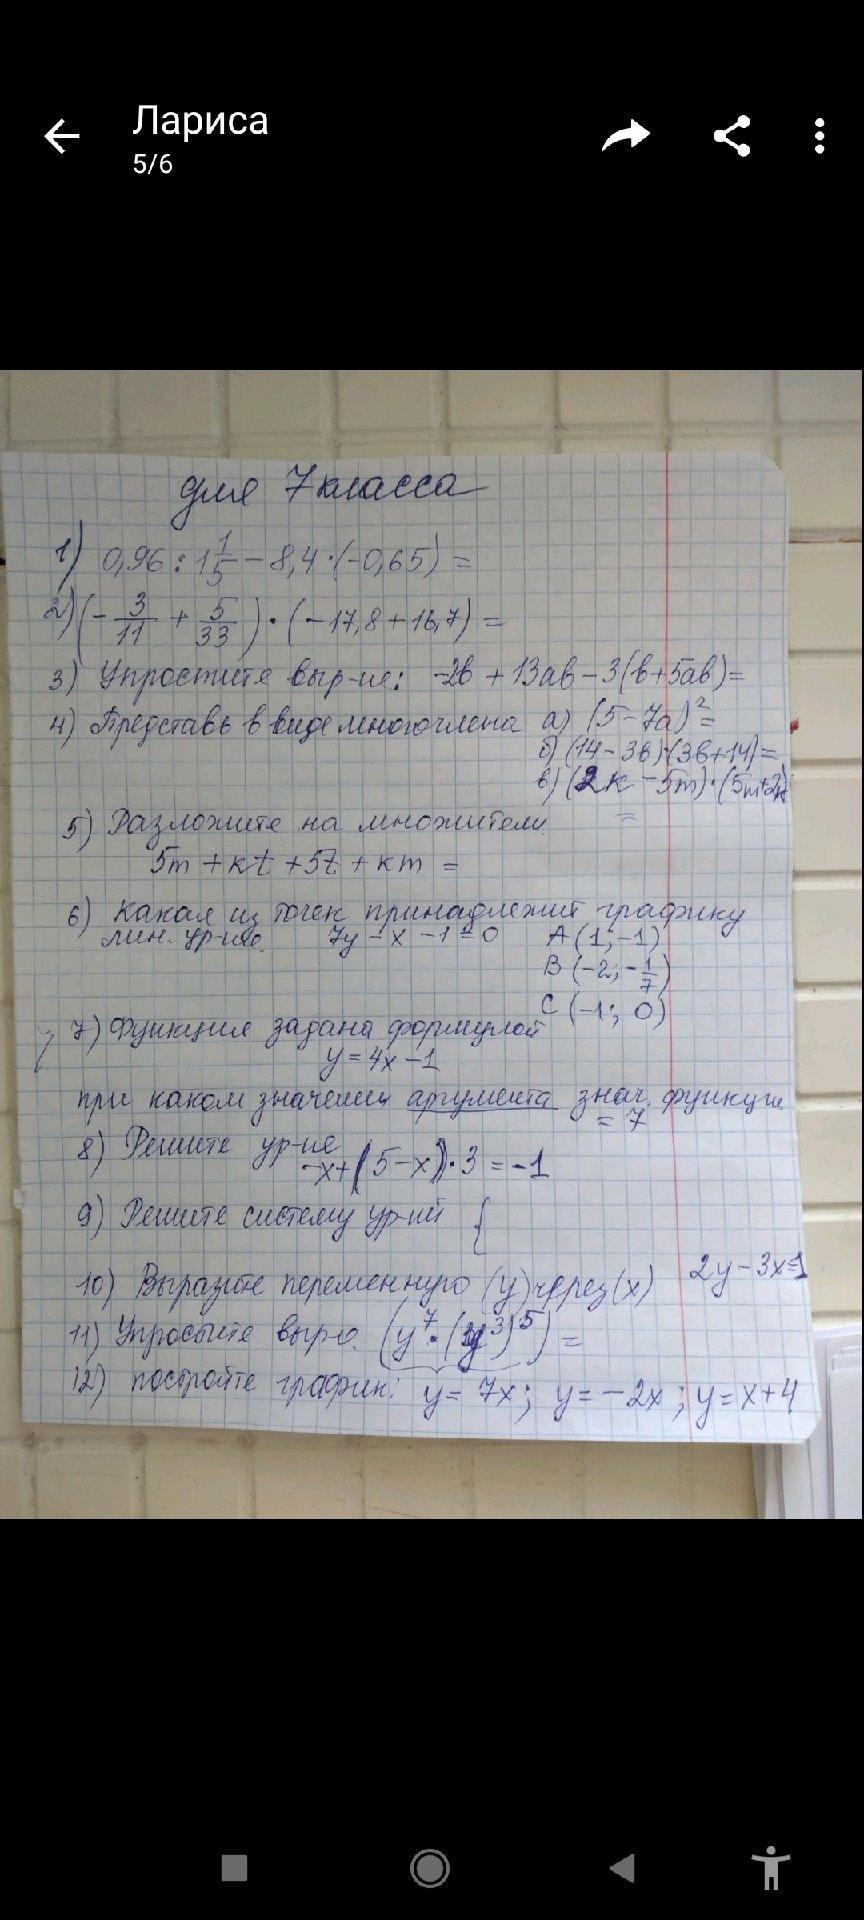 Лариса
5/6
для 7 класса
1) 0,96 : 1 1/5 - 8,4 · (-0,65) =
2) (- 3/11 + 5/33) · (-17,8 + 16,7) =
3) Упростите выр-ие: -2в + 13ав - 3(в + 5ав) =
4) Представь в виде многочлена а) (5 - 7а)² =
б) (14 - 3в)·(3в + 14) =
в) (2к - 5m)·(5m + 2к)
=
5) Разложите на множители
5m + кt + 5t + кm =
6) Какая из точек принадлежит графику
лин. ур-ия. 7y - x - 1 = 0 А (1; -1)
В (-2; -1/7)
С (-1; 0)
7) Функция задана формулой
y = 4x - 1
при каком значении аргумента знач. функции
= 7
8) Решите ур-ие
-x + (5 - x)·3 = -1
9) Решите систему ур-ий {
10) Выразите переменную (y) через (x) 2y - 3x = 1
11) Упростите выр-е. (y⁷ · (y³)⁵) =
12) постройте график: y = 7x; y = -2x; y = x + 4